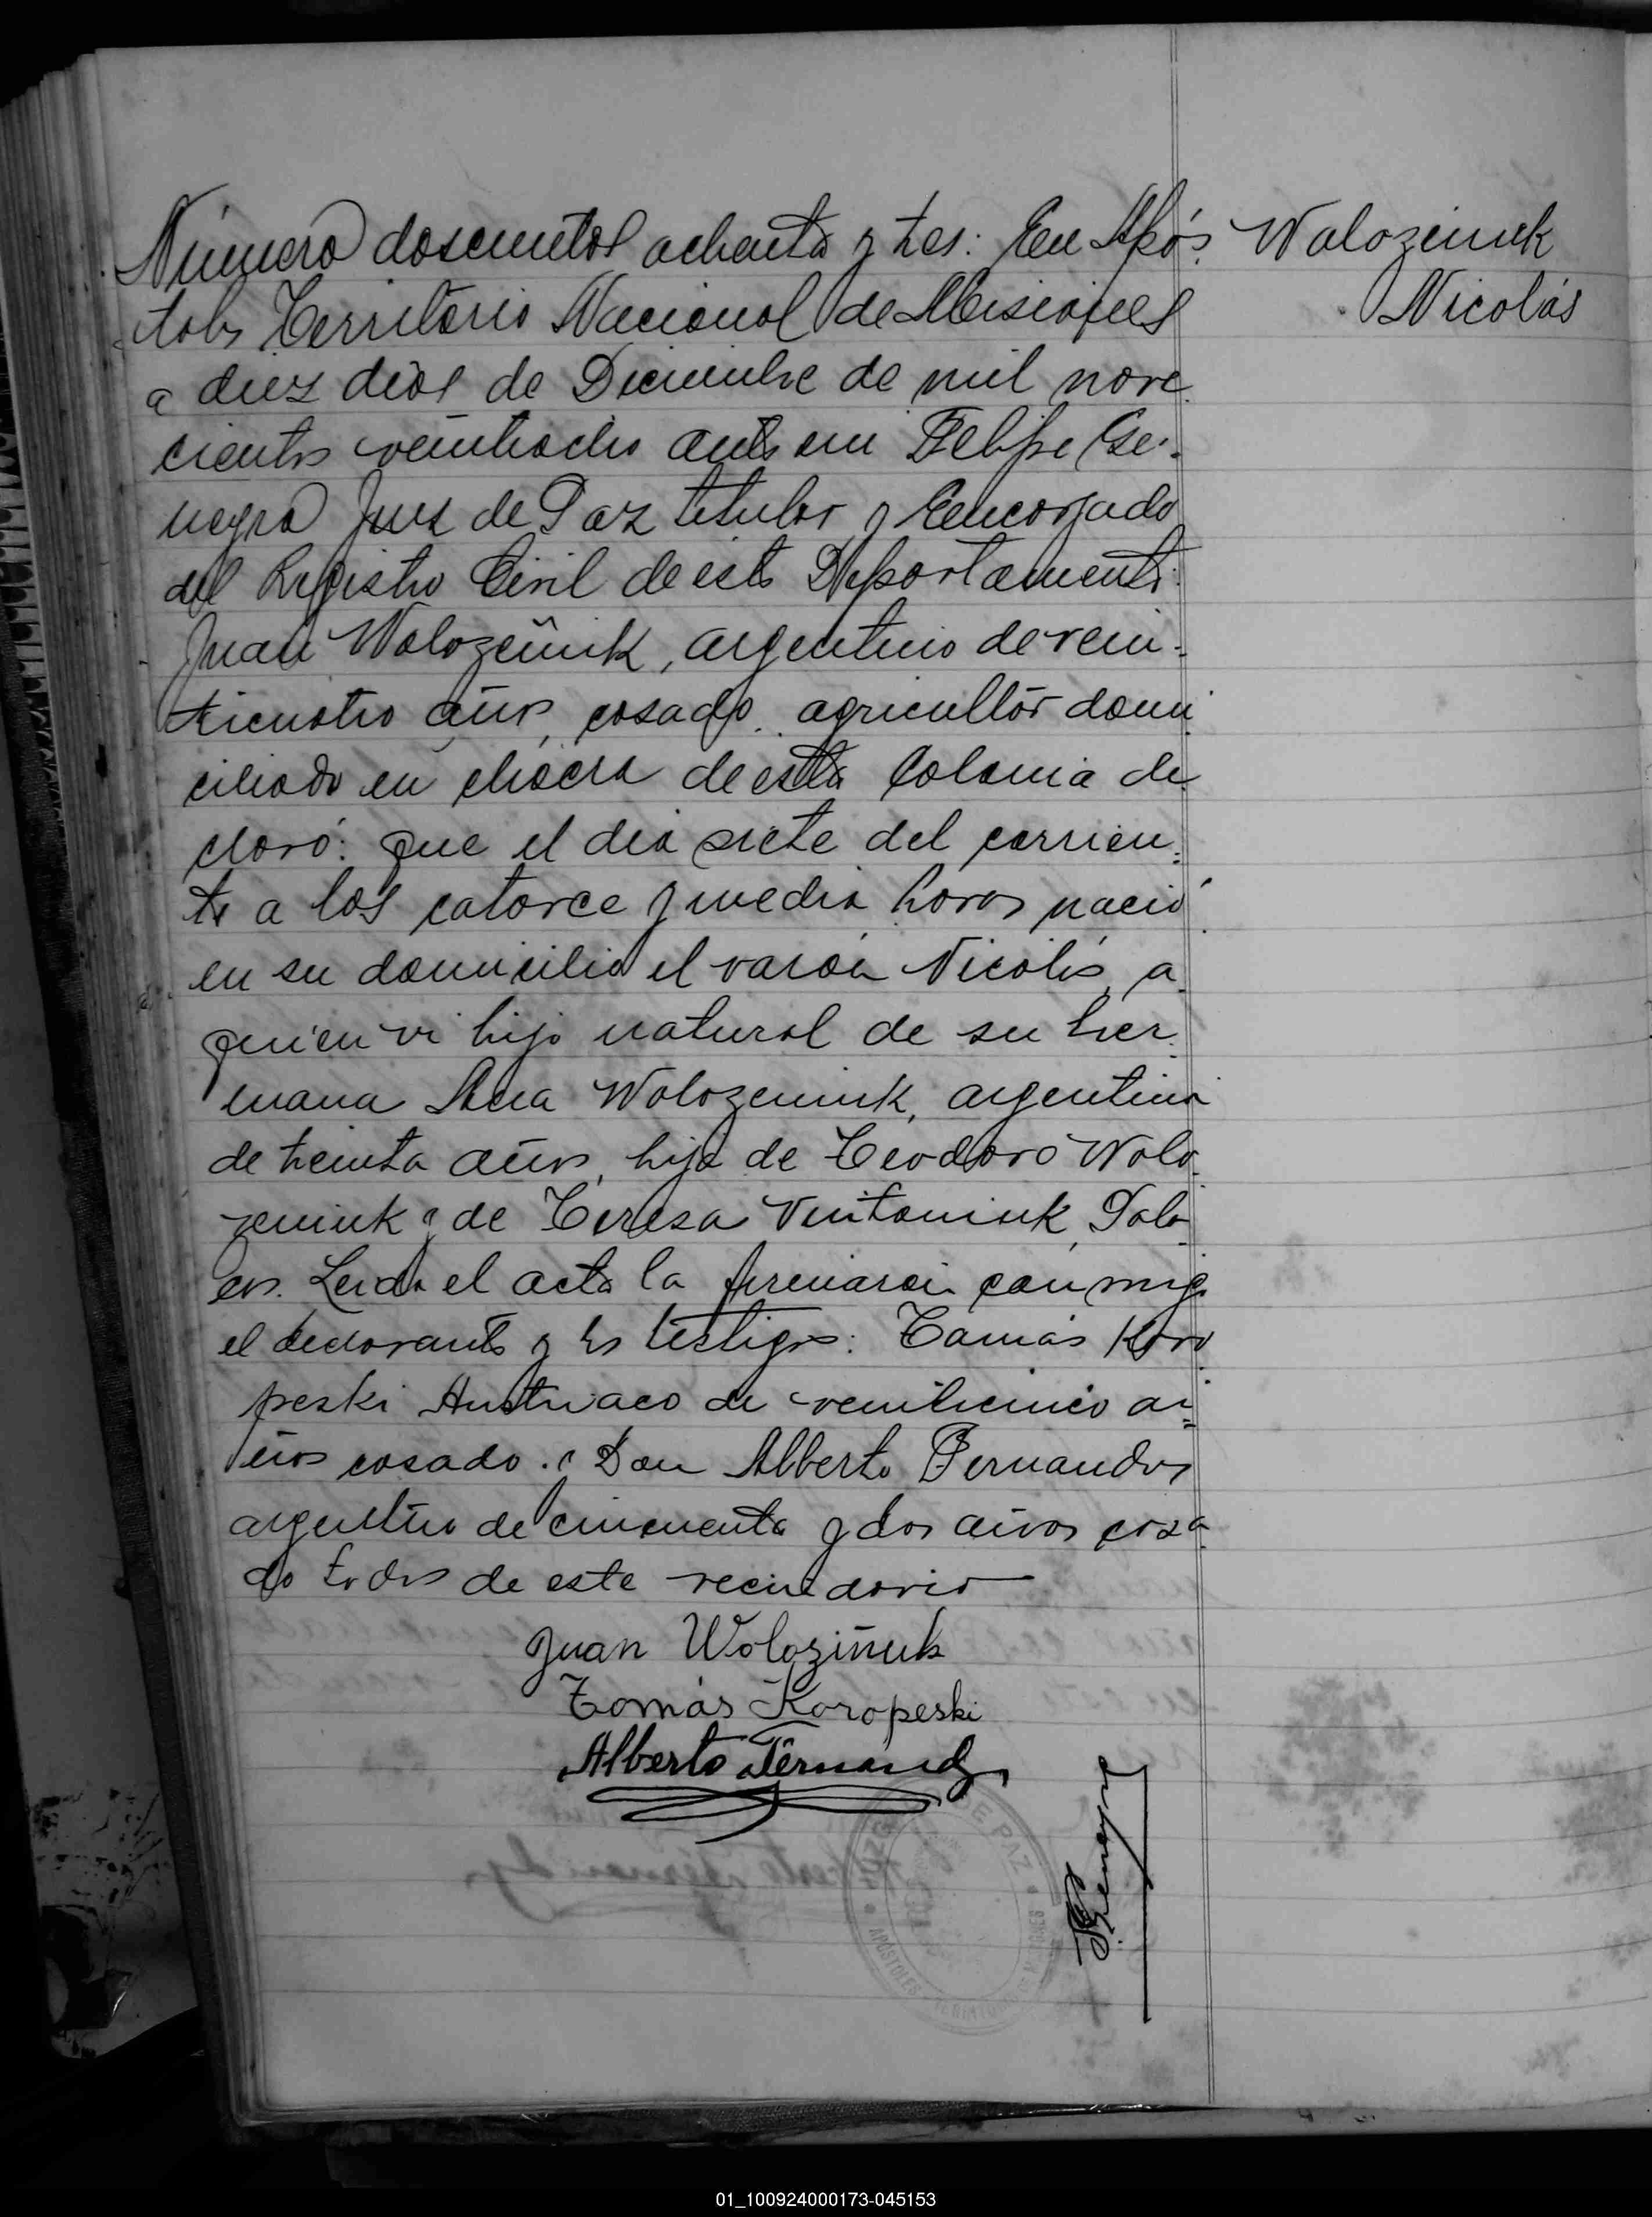 Número doscientos ochenta y tres: En Após
Walozeniuk
toles Territorio Nacional de Misiones
Nicolás
a diez dias de Diciembre de mil nove
cientos veintiocho ante mi Felipe Ge-
negra Juez de Paz titular y Encargado
del Registro Civil de este Departamento
Juan Wolozeniuk, argentino de vein-
ticuatro años, casado, agricultor domi
ciliado en chacra de esta Colonia de
claró: que el dia siete del corrien-
te a las catorce y media horas nació
en su domicilio el varón Nicolás, a
quien vi hijo natural de su her
mana Ana Wolozeniuk, argentina
de treinta años, hija de Teodoro Wolo
zeniuk y de Teresa Vintoniuk, Pola
cos. Leida el acta la firmaron conmigo
el declarante y los testigos: Tomás Koro
peski Austriaco de veinticinco a-
ños casado y Don Alberto Fernandez
argentino de cincuenta y dos años casa
do todos de este vecindario
Juan Woloziñuk
Tomás Koropeski
Alberto Fernandz
DE PAZ
APOSTOLES